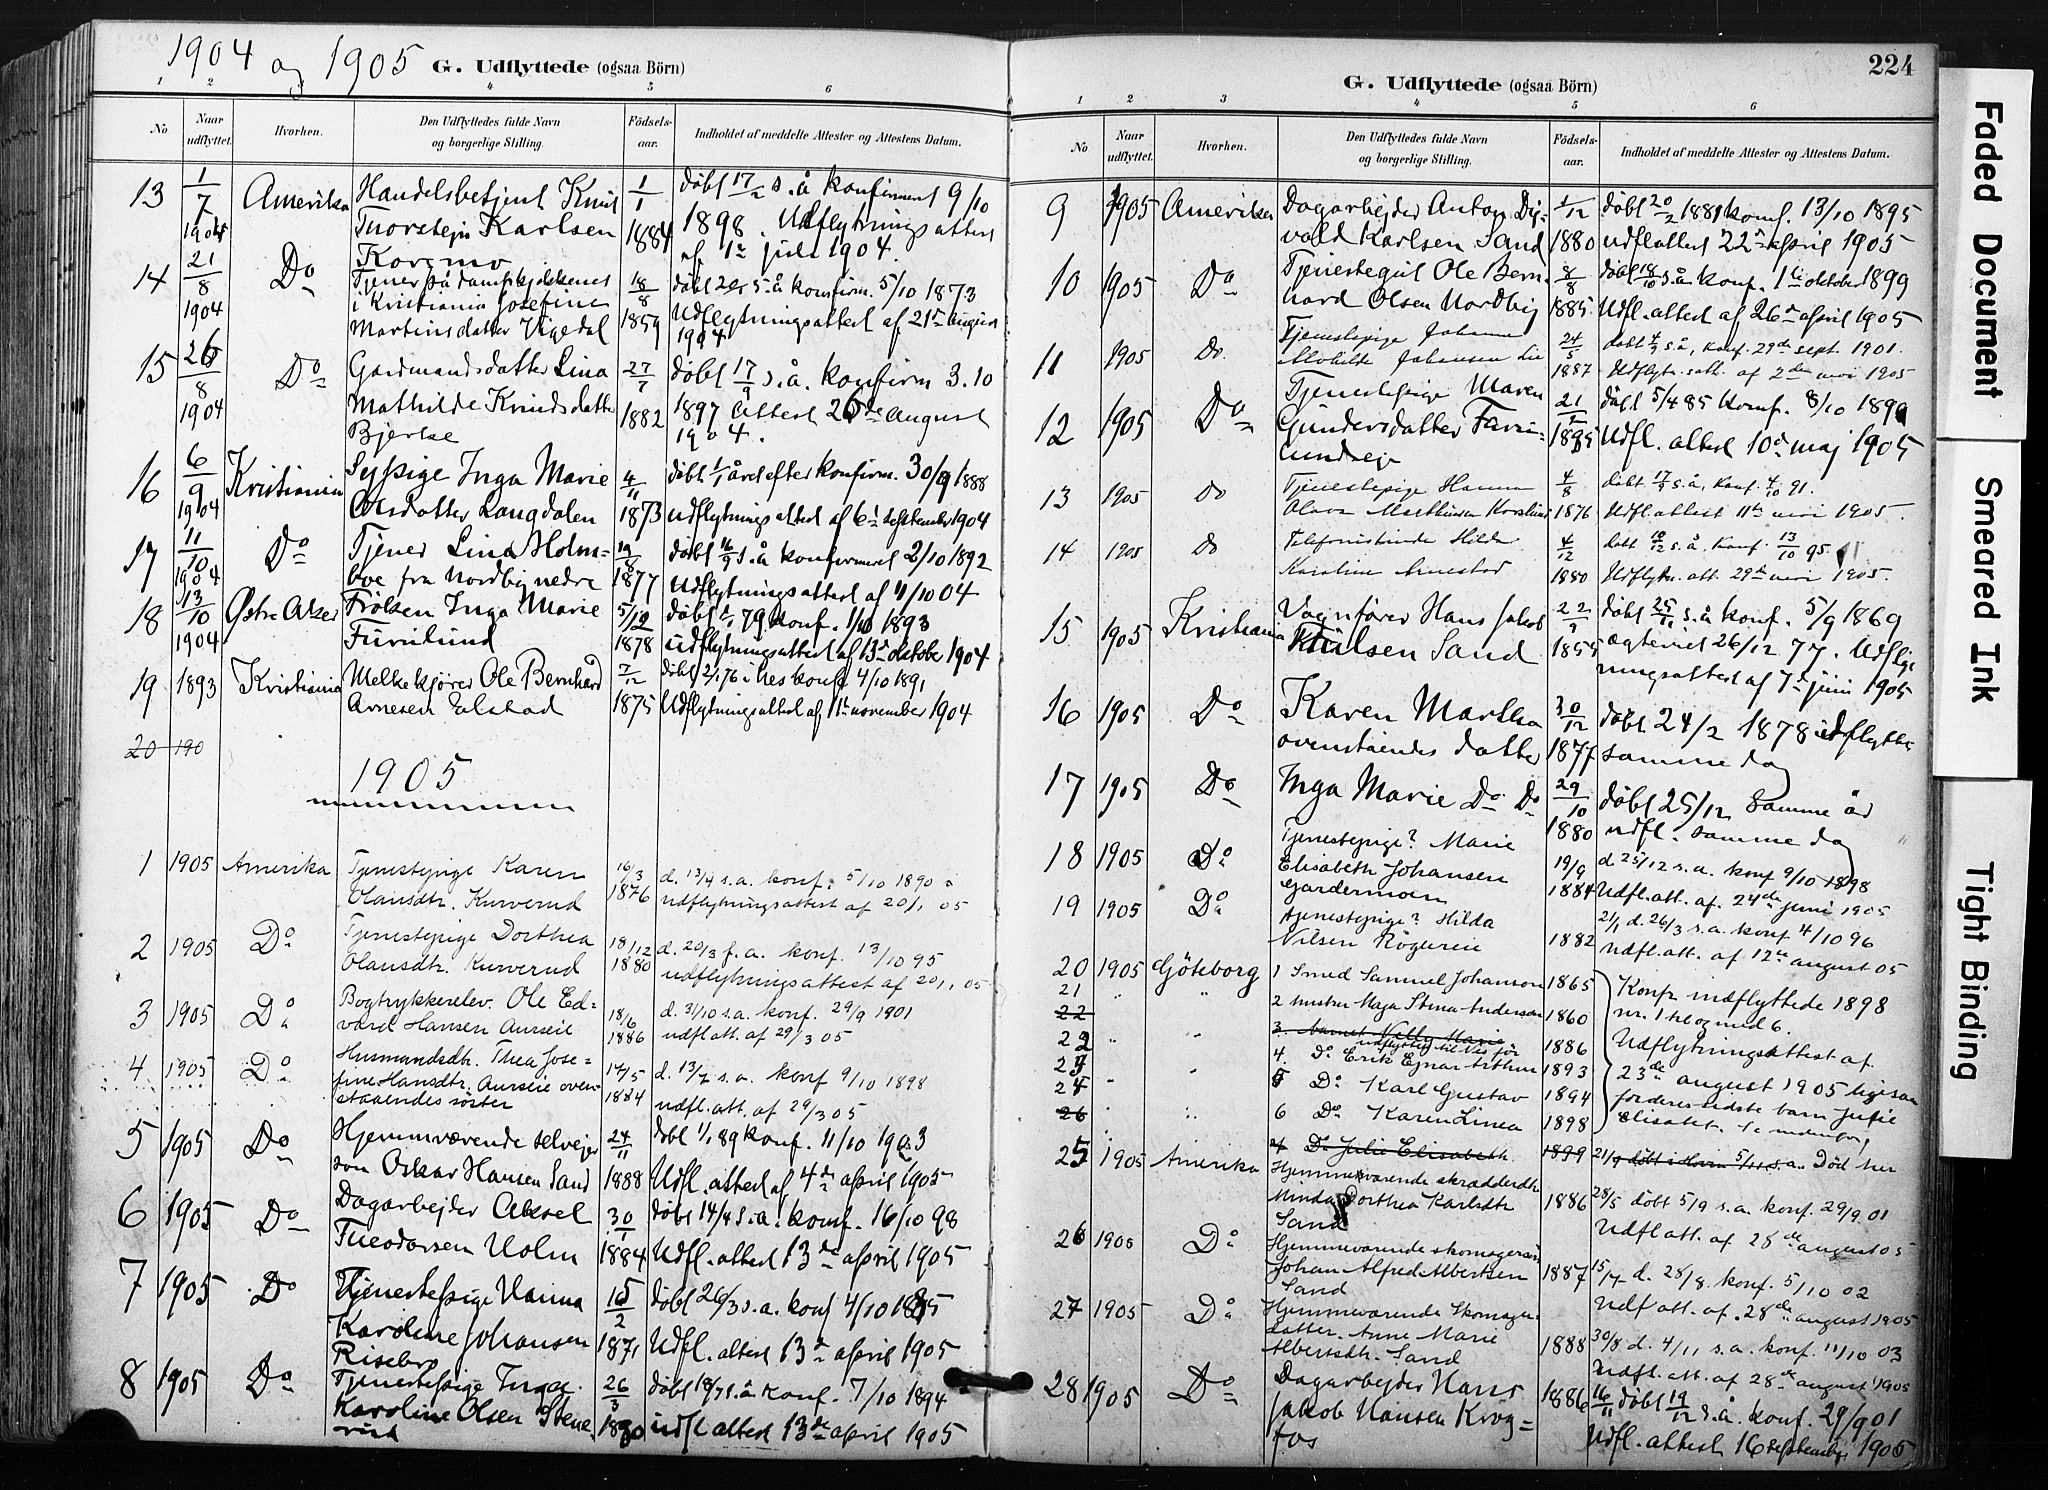 1904 og 1905
G. Udflyttede (ogsaa Börn)
1 2 4 5 6
No
Naar udflyttet.
Hvorhen.
Den Udflyttedes fulde Navn og borgerlige Stilling.
Födselsaar.
Indholdet af meddelte Attester og Attestens Datum.
13 1/7 1904 Amerika Handelsbetjent Knut 1/1 1884 døbt 17/2 s. å konfirmert 9/10
Thorstein Karlsen 1898. Udflytningsattest
Korsmo af 1ste juli 1904.
14 21/8 1904 Do Tjener på dampkjøkkenet 18/8 1859 døbt s. å konfirm. 5/10 1873
i Kristiania Josefine Udflytningsattest af 21de august
Martinsdatter Vigedal 1904
15 26/8 1904 Do Gardmandsdatter Lina 27/7 1882 døbt 17/9 s. å. konfirm 3.10
Mathilde Knudsdatter 1897 Attest 26de August
Bjerke 1904.
16 6/9 1904 Kristiania Sypige Inga Marie 4/11 1873 døbt 1/1 året efter konfirm. 30/9 1888
Olsdatter Langdalen udflytningsattest af 6te september 1904
17 11/10 1904 Do Tjener Lina Holm- 19/8 1877 døbt 16/9 s. å konfirmeret 2/10 1892
boe fra Nordby nedre Udflytningsattest af 11/10 04
18 13/10 1904 Østre Aker Frøken Inga Marie 5/12 1878 døbt 79 konf. 1/10 1893
Furulund udflytningsattest af 13de oktober 1904
19 1893 Kristiania Melkekjører Ole Bernhard 7/12 1875 døbt 2/1 76 i Nes konf 4/10 1891
Arnesen Elstad Udflytningsattest af 11te november 1904
20 190
1905
1 1905 Amerika Tjenestepige Karen 16/3 1876 d. 13/4 s. a. konf. 5/10 1890
Olansdtr. Kurverud udflytningsattest af 20/1 05
2 1905 Do Tjenestepige Dorthea 18/12 1880 d. 20/3 f. a. konf. 13/10 95
Olansdtr. Kurverud udflytningsattest af 20/1 05
3 1905 Do Bogtrykkerelev. Ole Ed- 18/6 1886 d. 31/10 s. a. konf. 29/9 1901
vard Hansen Aurseie udfl att. af 29/3 05
4 1905 Do Husmandsdtr. Thea Jose- 14/5 1884 d. 13/7 s. a. konf 9/10 1898
fine Hansdtr. Aurseie oven-
staaendes søster udfl. att. af 29/3 05
5 1905 Do Hjemmværende selveier 24/11 1888 døbt 1/1 89 konf. 11/10 1903
søn Oskar Hansen Sand Udfl. attest af 4de april 1905
6 1905 Do Dagarbejder Aksel 30/1 1884 døbt 14/4 s. a. konf. 16/10 98
Theodorsen Holm Udfl. attest 13de april 1905
7 1905 Do Tjenestepige Hanna 15/2 1871 døbt 26/3 s. a. konf 4/10 1885
Karoline Johansen Udfl. attest 13de april 1905
Risebro
8 1905 Do Tjenestepige Inga 26/3 1880 døbt 18/7 s. å konf. 7/10 1894
Karoline Olsen Stene- udfl attest 13de april 1905
rud
224
G. Udflyttede (ogsaa Börn)
1 2 3 4 5 6
No
Naar udflyttet.
Hvorhen.
Den Udflyttedes fulde Navn og borgerlige Stilling.
Födselsaar.
Indholdet af meddelte Attester og Attestens Datum.
9 1905 Amerika Dagarbejder Anton Dy- 1/12 1880 døbt 20/2 1881 konf. 13/10 1895
vald Karlsen Sand udfl attest 22de april 1905
10 1905 Do Tjenestegut Ole Bern- 8/8 1885 døbt 18/10 s. å konf. 1ste oktober 1899
hard Olsen Nordby Udfl. attest af 26de april 1905
11 1905 Do Tjenestepige Johanne 24/5 1887 døbt 4/9 s. å, konf. 29de sept. 1901.
Alvhilde Johansen Lie Udflytn. att. af 2den mai 1905
12 1905 Do Tjenestepige Maren 21/ 1885 døbt 5/4 85 konf. 8/10 1899
Gundersdatter Furu- Udfl. attest 10de maj 1905
lundseje
13 1905 Do Tjenestepige Hanna 4/8 1876 døbt 17/9 s. å, konf. 4/10 91.
Olava Mathisen Korslund Udfl. attest 11te mai 1905.
14 1905 Do Telefonistinde Hilda 4/12 1880 døbt 18/12 s. å. konf. 13/10 95.
Karoline Arnestad Udflytn. att. 29de mai 1905.
15 1905 Kristiania Vognfører Hans Jakob 22/9 1855 døbt 25/11 s. å konf. 5/9 1869
Sand ægteviet 26/12 77. Udflyt-
ningsattest af 7de juni 1905
16 1905 Do Karen Martha 30/12 1877 døbt 24/2 1878 udflyttet
ovenståendes datter samme dag
17 1905 Do Inga Marie Do Do 29/10 1880 døbt 25/12 samme år
udfl. samme dag
18 1905 Do Tjenestepige? Marie 19/9 1884 d. 25/12 s. a. konf 9/10 1898
Elisabeth Johansen
Gardermoen Udfl. att. af. 24de juni 1905
19 1905 Do Tjenestepige? Hilda 1882 21/1 d. 26/3 s. a. konf 4/10 96
Nilsen Røgureie Udfl. att. af 12te august 05
20 1905 Göteborg 1 Smed Samuel Johanson 1865 Konfr indflyttede 1898
21 " " 2 Hustru Maja Stina Anderson 1860 nr. 1 til og med 6.
22 " " 3. Barnet Nelly Marie 1886 Udflytningsattest af
udflyttet til Nes før
4. Do Erik Ejnar Arthur 1893 23de august 1905 ligesaa
24 " " 5 Do Karl Gustav 1894 forderes sidste barn Julie
26 " " 6 Do Karen Linea 1898 Elisabet. Se nedenfor
7 Do Julie Elisabeth 1899 21/9 døbt i Hovin 5/11 s. a. Død her
25 1905 Amerika Hjemmeværende skrædderdtr
Minda Dorthea Karlsdtr 1886 28/5 døbt 5/9 s. a. konf. 29/9 01
Sand Udfl att. af 28de august 05
26 1905 Do Hjemmeværende skomagersøn
Johan Alfred Albertsen 1887 15/7 d. 28/8. konf. 5/10 02
Sand Udfl att. af. 28de august 1905
27 1905 Do Hjemmeværende Skomager-
datter Anne Marie 1888 30/8 d. 4/11 s. a. konf. 11/10 03
Albertsdtr. Sand Udfl. att. af 28de august 1905
28 1905 Do Dagarbejder Hans 1886 16/11 døbt 19/12 s. å. konf. 29/9 01
Jakob Hansen Krog-
fos Udfl. attest 16 september 1905
Faded Document
Smeared Ink
Tight Binding